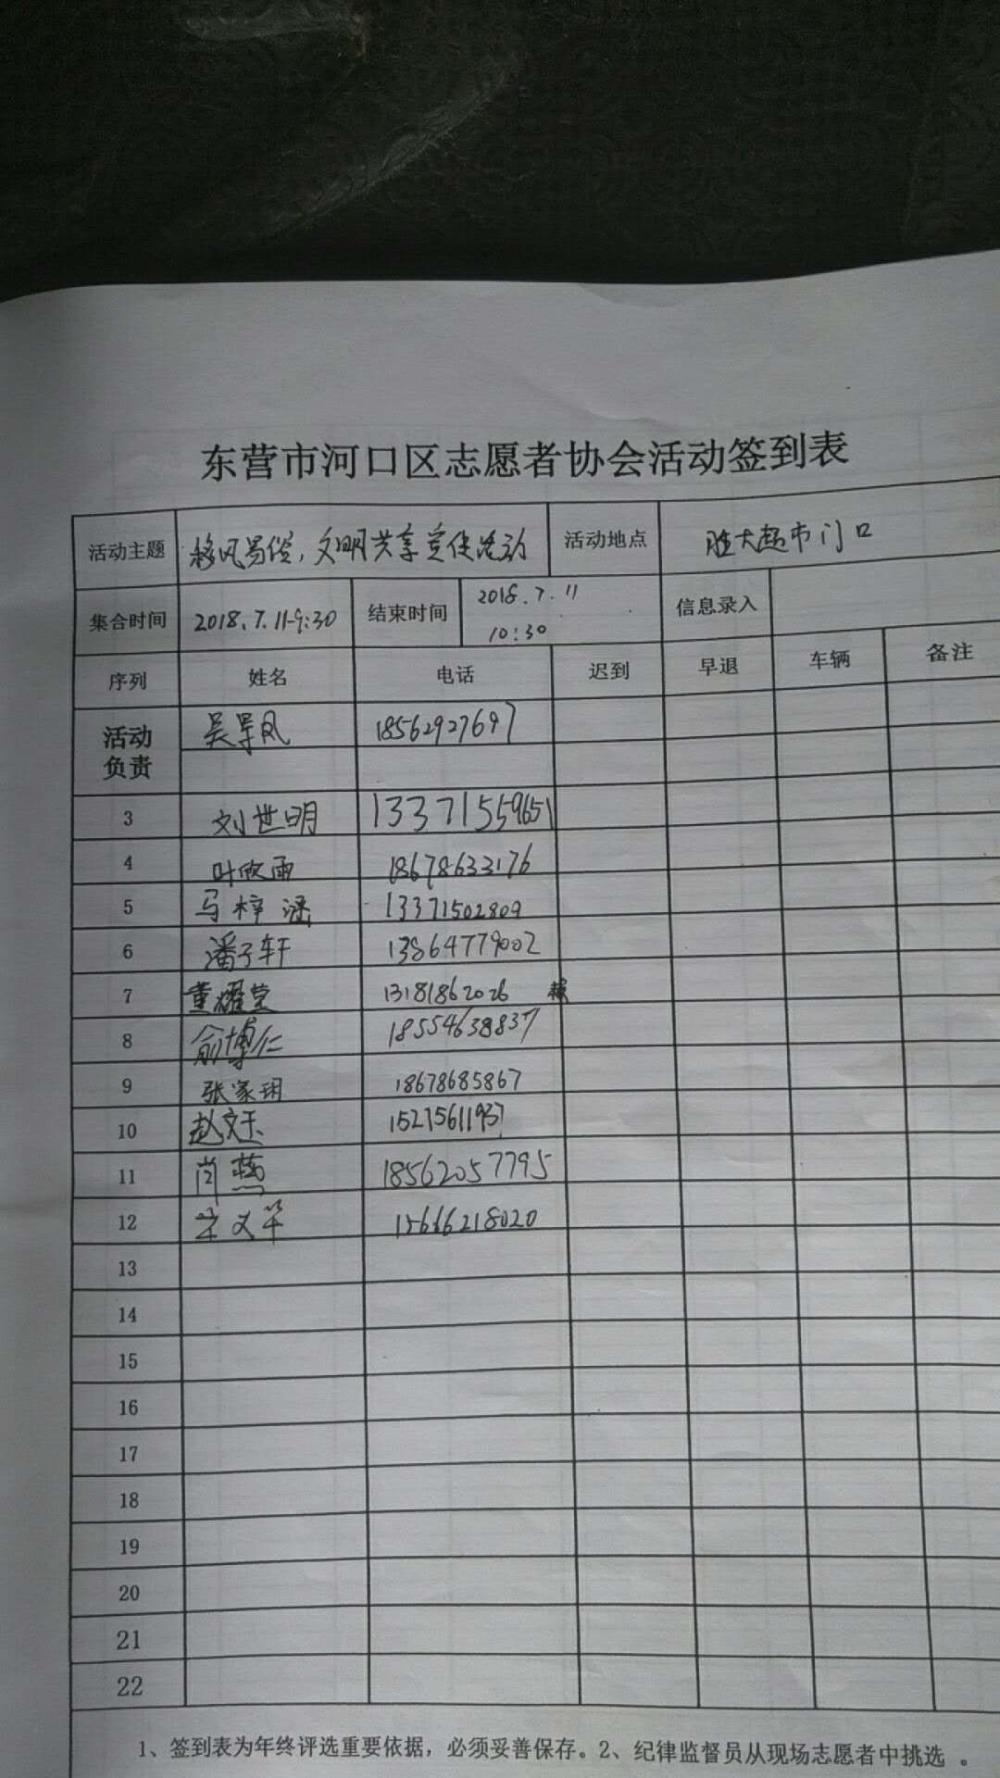 东营市河口区志愿者协会活动签到表
活动主题 移风易俗,文明共享宣传活动 活动地点 胜大超市门口
集合时间 2018.7.11-9:30 结束时间 2018.7.11 10:30 信息录入
序列 姓名 电话 迟到 早退 车辆 备注
活动负责 吴凤 18562927697
3 刘世明 13371559651
4 叶欣雨 18678633176
5 马梓涵 13371502809
6 潘子轩 13864779002
7 董耀莹 13181862026
8 俞博仁 18554638837
9 张家玥 18678685867
10 赵文玉 15275611937
11 肖燕 18562057795
12 文华 15666218020
13
14
15
16
17
18
19
20
21
22
1、签到表为年终评选重要依据，必须妥善保存。2、纪律监督员从现场志愿者中挑选 。